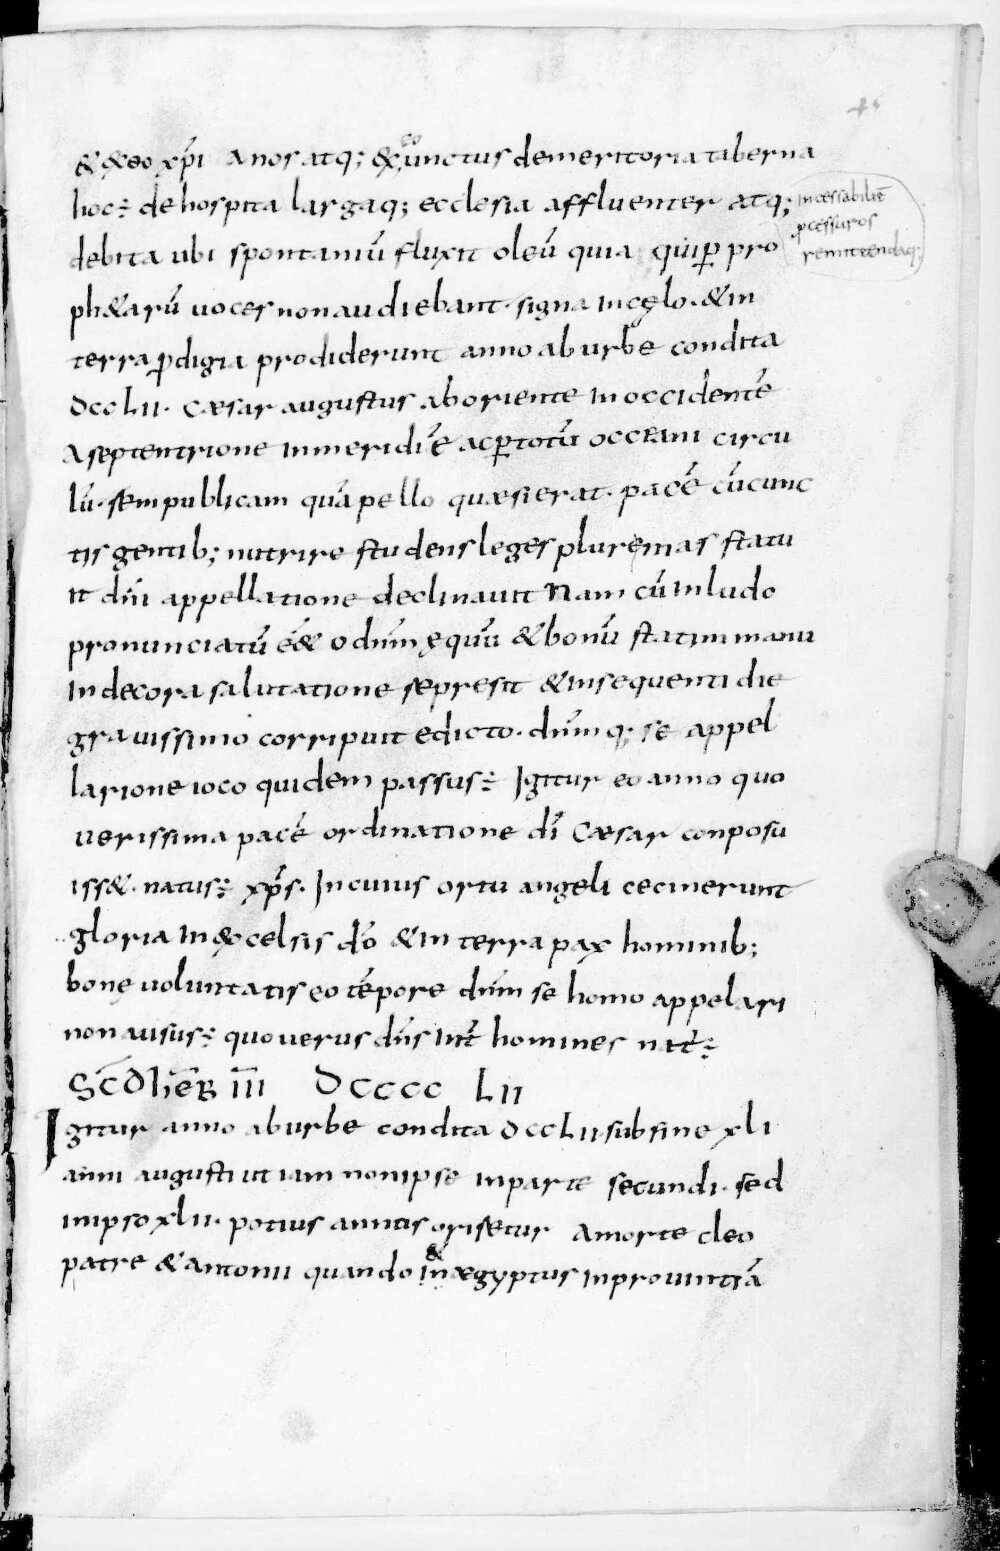 46
& &eo xp̄i Anos atq; & ex eo unctus demeritoria taberna
hoc ÷ de hospita largaq; ecclesia affluenter atq;
incessabilit̄
p̱cessuros
remittendaq;
debita ubi spontaniū fluxit oleū quia qui p̱ pro
ph&arū uoces non audiebant · signa in cęlo · & in
terra p̱digia prodiderunt anno ab urbe condita
DCCLII · Cæsar augustus ab oriente in occidentē
A septentrione in meridiē ac p̱ totū occeani circu
lū · sem publicam quā pello quæsierat · pacē cū cunc
tis gentib; nutrire studens leges pluremas statu
it dn̄i appellatione declinauit Nam cū in ludo
pronunciatū éé& o dn̄m ęquū & bonū statim manu
Indecora salutatione sepresit & insequenti die
grauissimo corripuit edicto · dn̄mq; se appel
larione ioco quidem passus ÷ Igitur eo anno quo
uerissima pacē ordinatione dī Cæsar conposu
iss& · natus ÷ xp̄s · In cuius ortu angeli cecinerunt
gloria In &celsis d̄o & in terra pax hominib;
bonę uoluntatis eo tēpore dn̄m se homo appelari
non ausus ÷ quo uerus dn̄s int̄ homines nat̄ ÷
S̄C̄D̄ h̄ēB̄ III DCCCC LII
Igitur anno ab urbe condita DCCLII sub fine xlı
anni augusti ut iam non ipse in parte secundi · sed
in ipso xlıı · potius annus orisetur A morte cleo
patre & antonii quando & in ægyptus in prouintiā